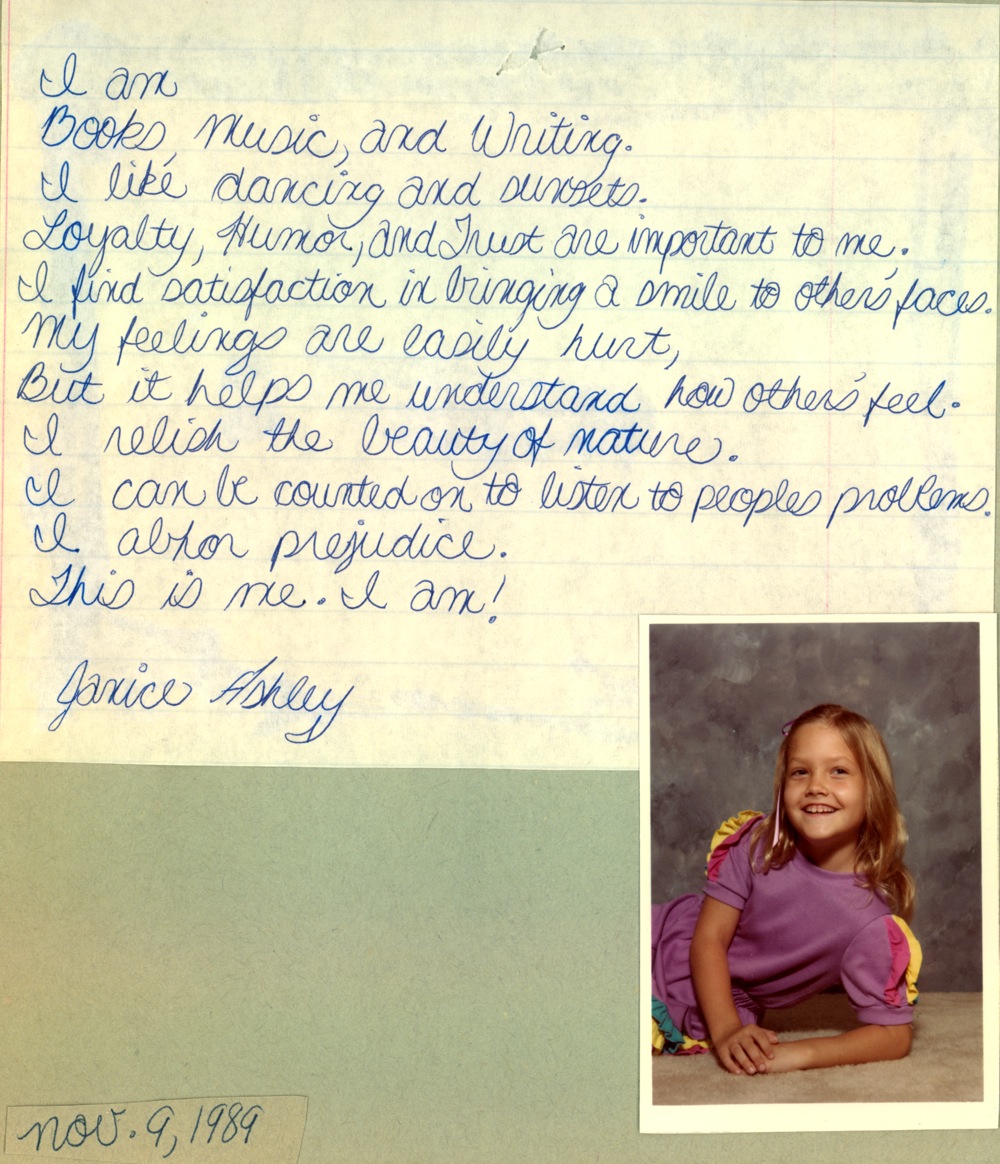 I am
Books, Music, and Writing.
I like dancing and sunsets.
Loyalty, Humor, and Trust are important to me.
I find satisfaction in bringing a smile to others' faces.
My feelings are easily hurt,
But it helps me understand how others' feel.
I relish the beauty of nature.
I can be counted on to listen to peoples problems.
I abhor prejudice.
This is me. I am!
Janice Ashley
Nov. 9, 1989